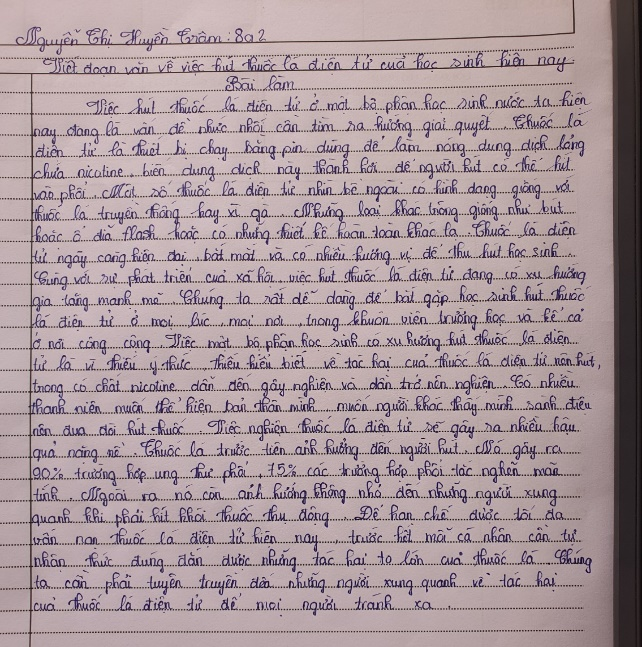 Nguyễn Thị Huyền Trâm : 8a2
Viết đoạn văn về việc hút thuốc lá điện tử cuả học sinh hiện nay
Bài làm
Việc hút thuốc lá điện tử ở một bộ phận học sinh nước ta hiện
nay đang là vấn đề nhức nhối cần tìm ra hướng giải quyết. Thuốc lá
điện tử là thiết bị chạy bằng pin dùng để làm nóng dung dịch lỏng
chứa nicoline, biến dung dịch này thành hơi để người hút có thể hút
vào phổi. Một số thuốc lá điện tử nhìn bề ngoài có hình dạng giống với
thuốc lá truyền thống hay xì gà. Những loại khác trông giống như bút
hoặc ổ đĩa flash hoặc có những thiết kế hoàn toàn khác lạ. Thuốc lá điện
tử ngày càng hiện đại, bắt mắt và có nhiều hướng vị để thu hút học sinh.
Cùng với sự phát triển cuả xã hội, việc hút thuốc lá điện tử đang có xu hướng
gia tăng mạnh mẽ. Chúng ta rất dễ dàng để bắt gặp học sinh hút thuốc
lá điện tử ở mọi lúc, mọi nơi, trong khuôn viên trường học và kể cả
ở nơi công cộng. Việc một bộ phận học sinh có xu hướng hút thuốc lá điện
tử là vì thiếu ý thức, thiếu hiểu biết về tác hại cuả thuốc lá điện tử nên hút,
trong có chất nicoline dẫn đến gây nghiện và dần trở nên nghiện. Có nhiều
thanh niên muốn thể hiện bản thân mình, muốn người khác thấy mình sành điệu
nên đua đòi hút thuốc. Việc nghiện thuốc lá điện tử sẽ gây ra nhiều hậu
quả nặng nề. Thuốc lá trước tiên ảnh hưởng đến người hút. Nó gây ra
90% trường hợp ung thư phổi, 75% các trường hợp phổi tắc nghẽn mãn
tính. Ngoài ra nó còn ảnh hưởng không nhỏ đến những người xung
quanh khi phải hít khói thuốc thụ động. Để hạn chế được tối đa
vấn nạn thuốc lá điện tử hiện nay, trước hết mỗi cá nhân cần tự
nhận thức đúng đắn được những tác hại to lớn cuả thuốc lá. Chúng
ta cần phải tuyên truyền đến những người xung quanh về tác hại
cuả thuốc lá điện tử để mọi người tránh xa.